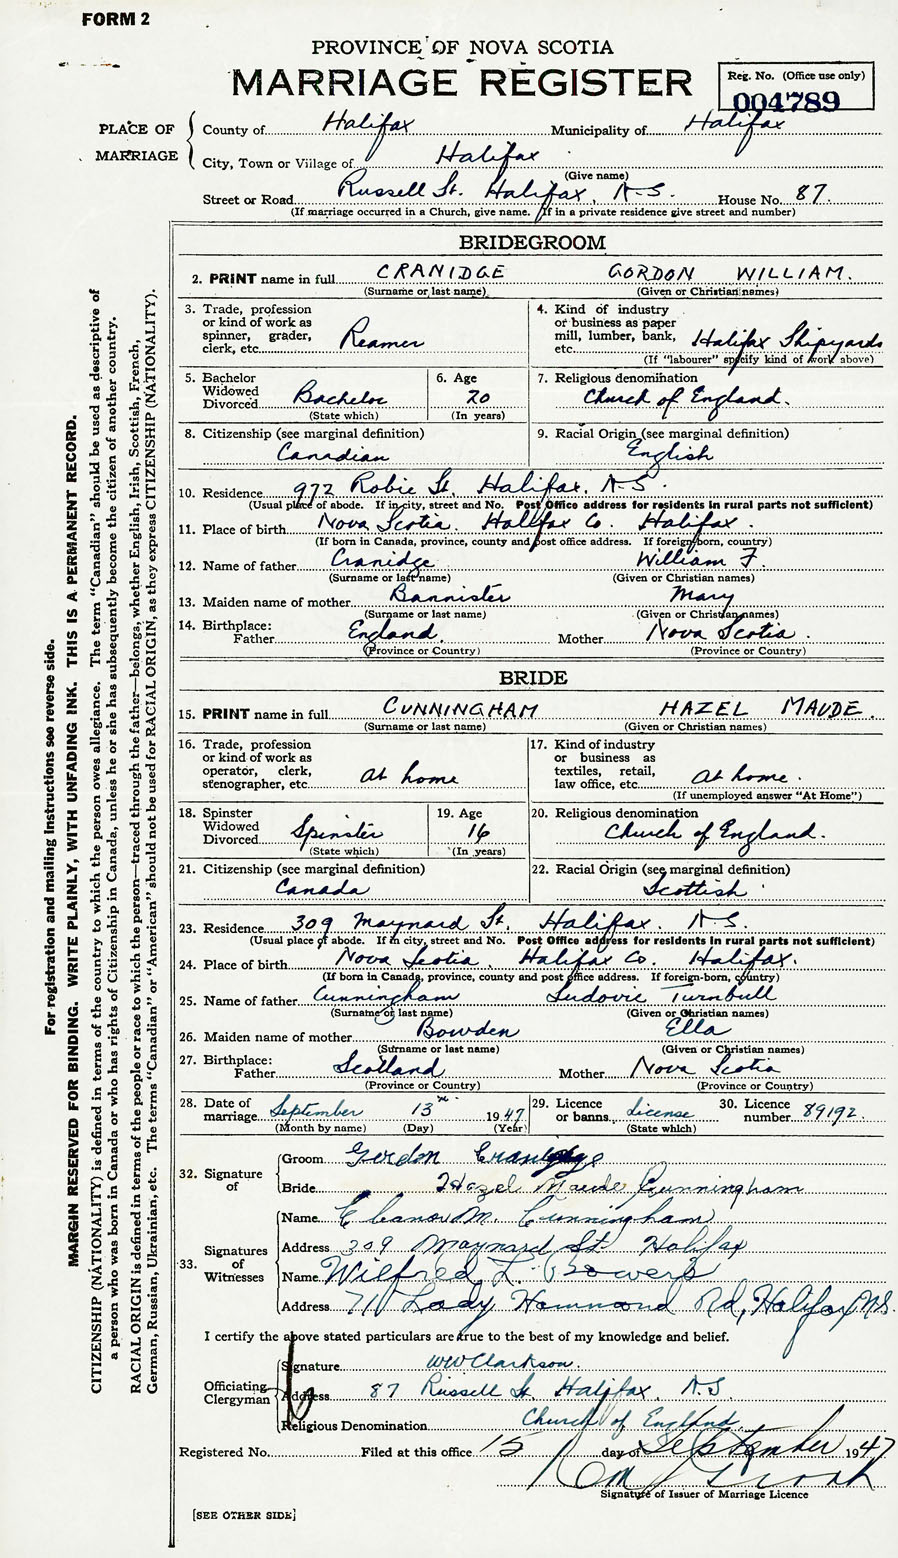 FORM 2
PROVINCE OF NOVA SCOTIA
MARRIAGE REGISTER
Reg. No. (Office use only)
004789
PLACE OF MARRIAGE
County of Halifax Municipality of Halifax
City, Town or Village of Halifax
(Give name)
Street or Road Russell St. Halifax, N.S. House No. 87.
(If marriage occurred in a Church, give name. If in a private residence give street and number)
BRIDEGROOM
2. PRINT name in full CRANIDGE GORDON WILLIAM.
(Surname or last name) (Given or Christian names)
3. Trade, profession
or kind of work as
spinner, grader,
clerk, etc. Reamer
4. Kind of industry
or business as paper
mill, lumber, bank,
etc. Halifax Shipyards
(If "labourer" specify kind of work above)
5. Bachelor
Widowed
Divorced Bachelor
(State which)
6. Age
20
(In years)
7. Religious denomination
Church of England.
8. Citizenship (see marginal definition)
Canadian
9. Racial Origin (see marginal definition)
English
10. Residence 972 Robie St. Halifax. N.S.
(Usual place of abode. If in city, street and No. Post Office address for residents in rural parts not sufficient)
11. Place of birth Nova Scotia. Halifax Co. Halifax.
(If born in Canada, province, county and post office address. If foreign-born, country)
12. Name of father Cranidge William F.
(Surname or last name) (Given or Christian names)
13. Maiden name of mother Bannister Mary
(Surname or last name) (Given or Christian names)
14. Birthplace:
Father England. Mother Nova Scotia.
(Province or Country) (Province or Country)
BRIDE
15. PRINT name in full CUNNINGHAM HAZEL MAUDE.
(Surname or last name) (Given or Christian names)
16. Trade, profession
or kind of work as
operator, clerk,
stenographer, etc. At home
17. Kind of industry
or business as
textiles, retail,
law office, etc. At home.
(If unemployed answer "At Home")
18. Spinster
Widowed
Divorced Spinster
(State which)
19. Age
16
(In years)
20. Religious denomination
Church of England.
21. Citizenship (see marginal definition)
Canada
22. Racial Origin (see marginal definition)
Scottish
23. Residence 309 Maynard St. Halifax. N.S.
(Usual place of abode. If in city, street and No. Post Office address for residents in rural parts not sufficient)
24. Place of birth Nova Scotia. Halifax Co. Halifax.
(If born in Canada, province, county and post office address. If foreign-born, country)
25. Name of father Cunningham Ludovic Turnbull
(Surname or last name) (Given or Christian names)
26. Maiden name of mother Bowden Ella
(Surname or last name) (Given or Christian names)
27. Birthplace:
Father Scotland Mother Nova Scotia
(Province or Country) (Province or Country)
28. Date of
marriage September 13th 1947
(Month by name) (Day) (Year)
29. Licence
or banns License
(State which)
30. Licence
number 89192.
32. Signature
of
Groom Gordon Cranidge
Bride Hazel Maude Cunningham
33. Signatures
of
Witnesses
Name Eleanor M. Cunningham
Address 309 Maynard St. Halifax
Name Wilfred L. Bowers
Address 711 Lady Hammond Rd, Halifax, N.S.
I certify the above stated particulars are true to the best of my knowledge and belief.
Officiating
Clergyman
Signature WW Clarkson.
Address 87 Russell St. Halifax. N.S
Religious Denomination Church of England
Registered No. Filed at this office 15 day of September 1947
Signature of Issuer of Marriage Licence
[SEE OTHER SIDE]
For registration and mailing instructions see reverse side.
MARGIN RESERVED FOR BINDING. WRITE PLAINLY, WITH UNFADING INK. THIS IS A PERMANENT RECORD.
CITIZENSHIP (NATIONALITY) is defined in terms of the country to which the person owes allegiance. The term "Canadian" should be used as descriptive of
a person who was born in Canada or who has rights of Citizenship in Canada, unless he or she has subsequently become the citizen of another country.
RACIAL ORIGIN is defined in terms of the people or race to which the person—traced through the father—belongs, whether English, Irish, Scottish, French,
German, Russian, Ukrainian, etc. The terms "Canadian" or "American" should not be used for RACIAL ORIGIN, as they express CITIZENSHIP (NATIONALITY).